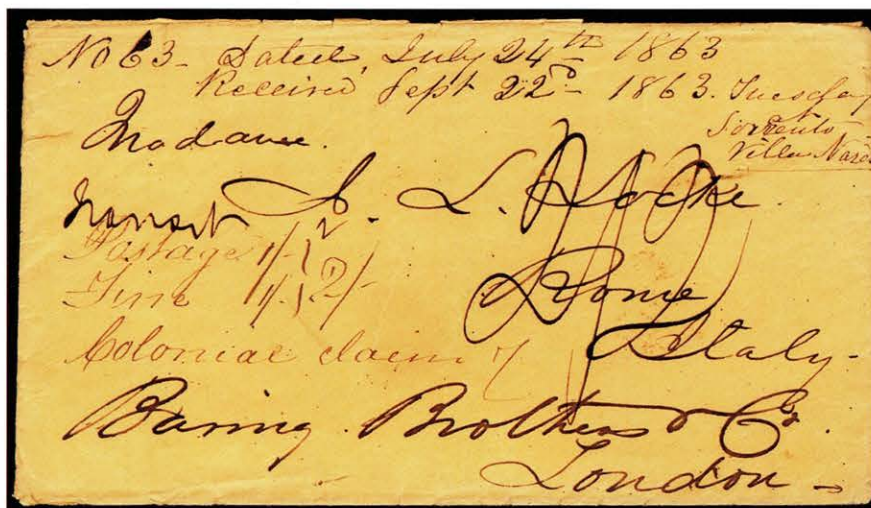 No 63 - Dated, July 24th 1863
Received Sept 22d - 1863. Tuesday
Sorrento
Villa
Madame.
L. Locke.
Transit
Postage 1/- 2
Fine 1/- 2/-
Rome
Italy-
Colonial claim
Baring Brothers & Co.
London -